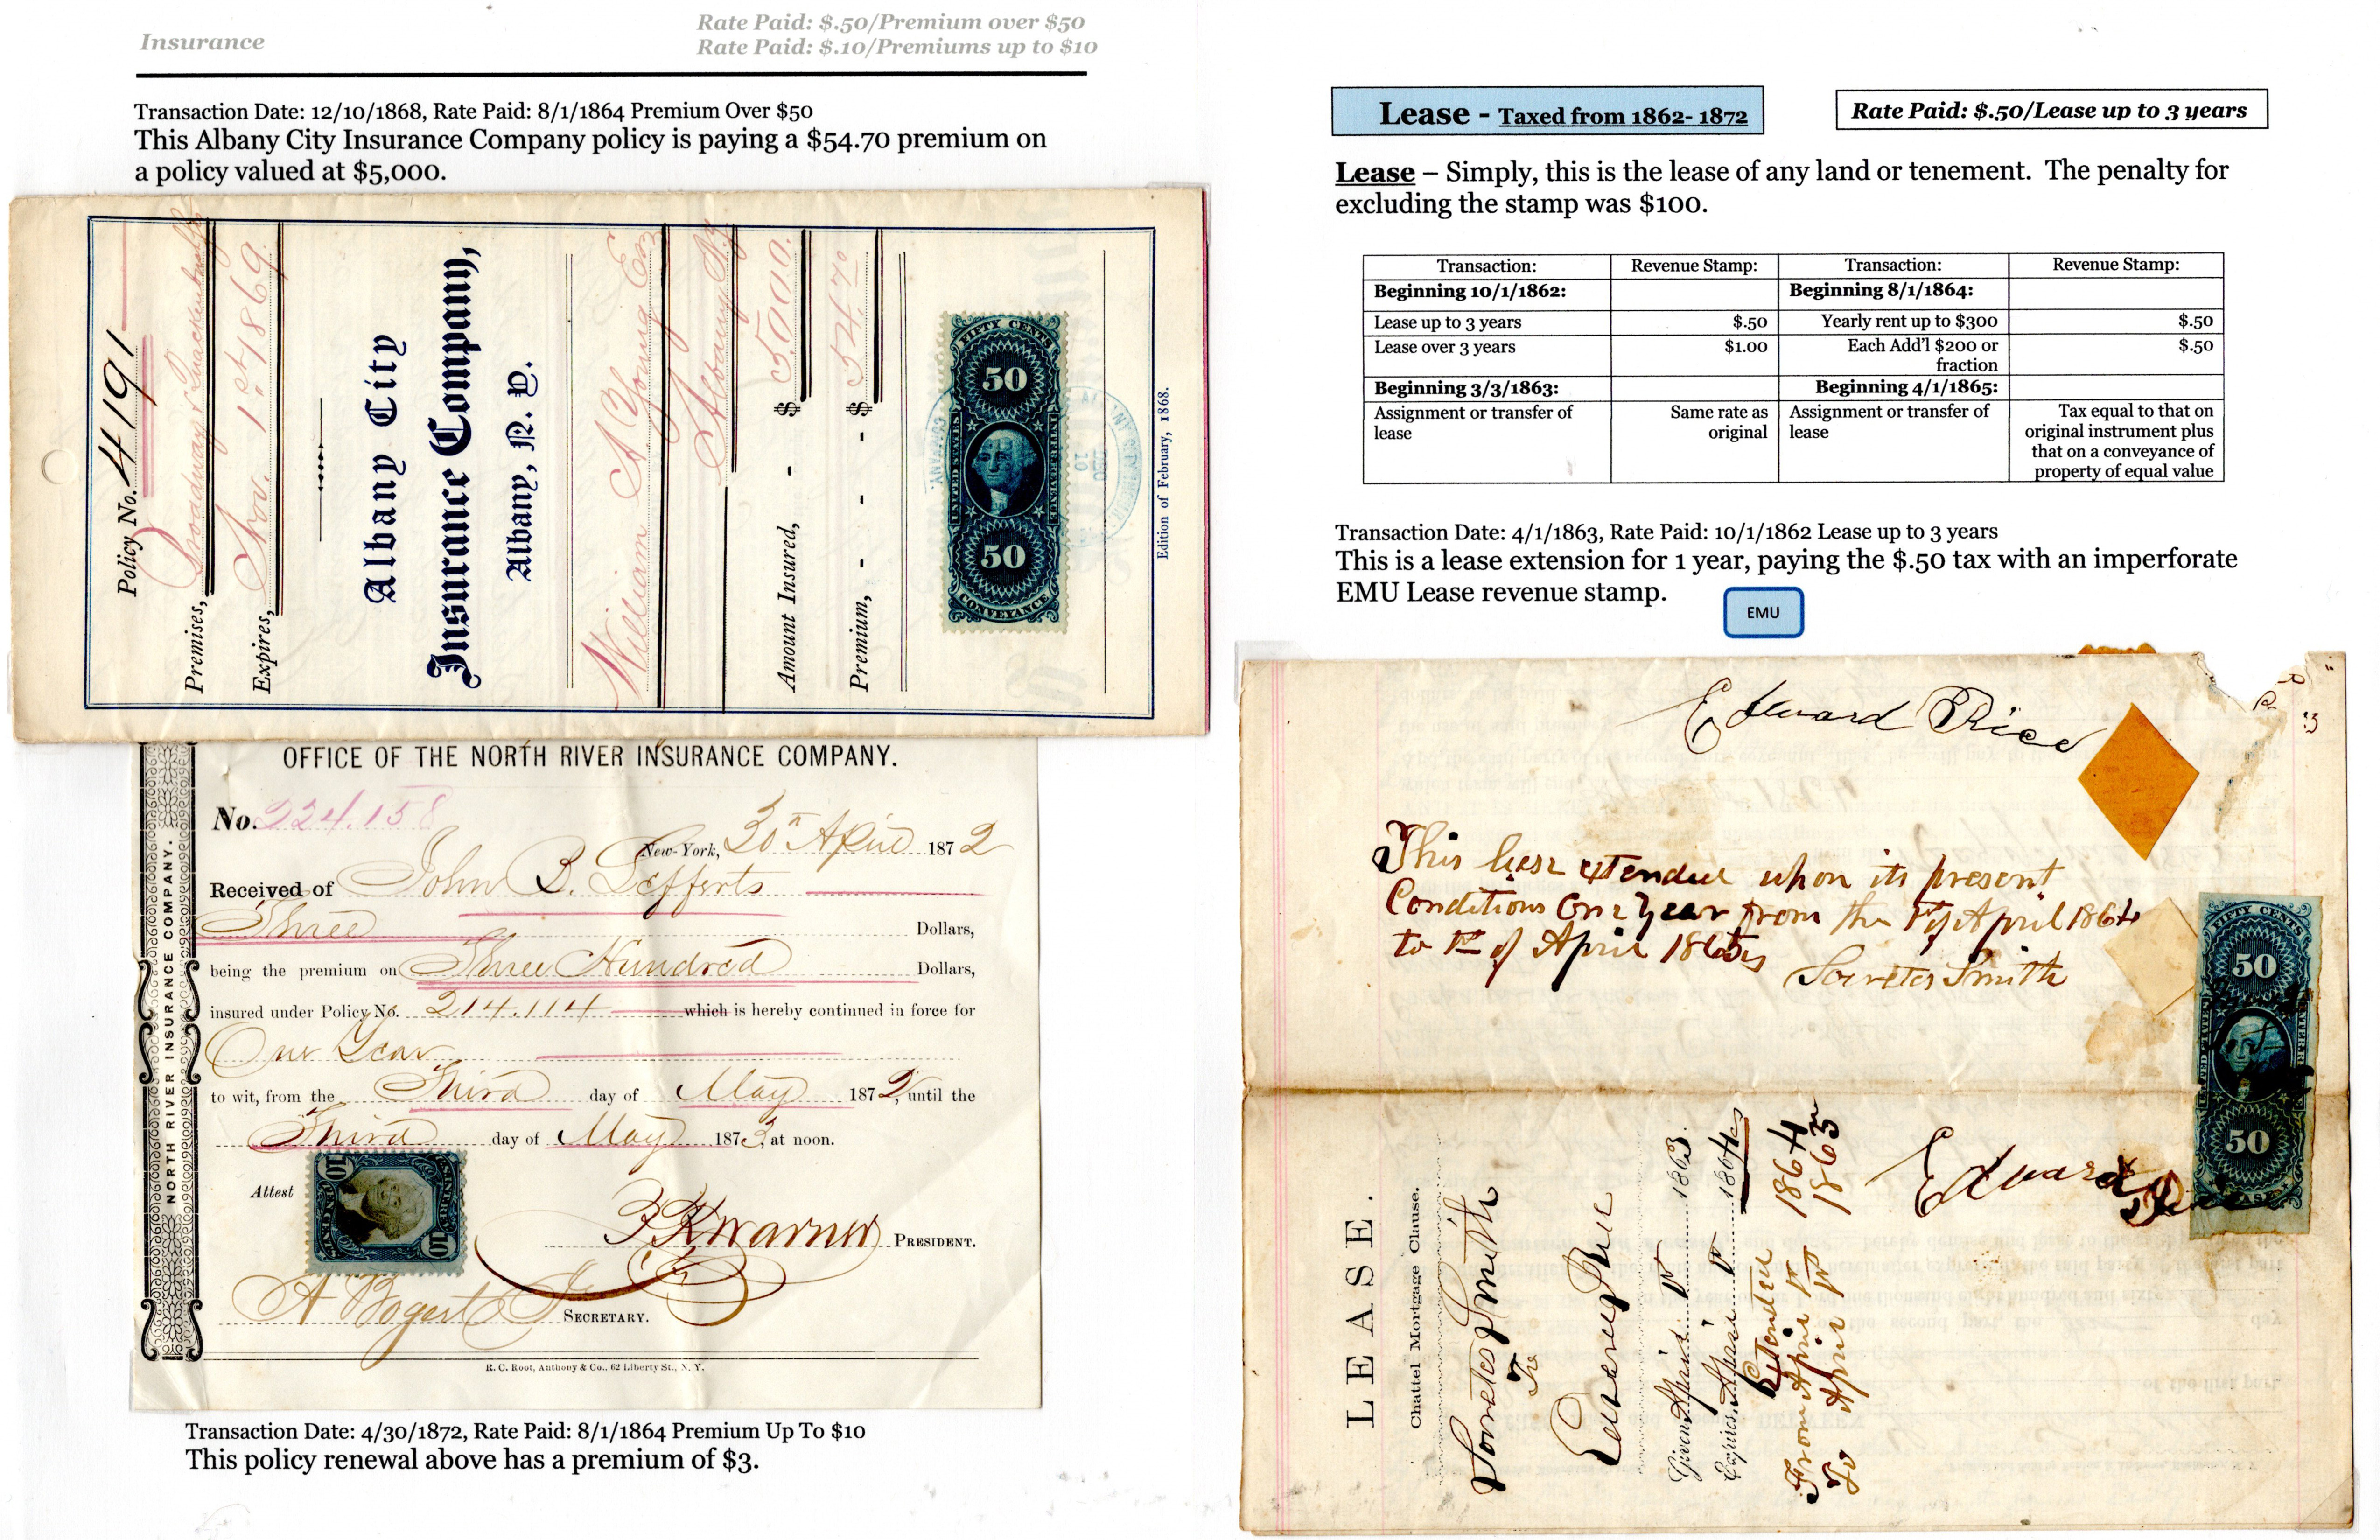 Insurance
Rate Paid: $.50/Premium over $50
Rate Paid: $.10/Premiums up to $10
Transaction Date: 12/10/1868, Rate Paid: 8/1/1864 Premium Over $50
This Albany City Insurance Company policy is paying a $54.70 premium on
a policy valued at $5,000.
Policy No. 4191
Premises, Broadway &
Expires, Nov. 1st 1869
Albany City
Insurance Company,
Albany, N. Y.
William A Young
Albany N.Y
Amount Insured, - $ 5000.
Premium, - - - $ 54.70
FIFTY CENTS
50
UNITED STATES
INTER. REVENUE
50
CONVEYANCE
DEC
10
Edition of February, 1868.
OFFICE OF THE NORTH RIVER INSURANCE COMPANY.
NORTH RIVER INSURANCE COMPANY.
No. 224.158
New-York, 30th April 1872
Received of John B. Lefferts
Three Dollars,
being the premium on Three Hundred Dollars,
insured under Policy No. 214.114 which is hereby continued in force for
One Year
to wit, from the Third day of May 1872, until the
Third day of May 1873, at noon.
Attest
10
10
Warner PRESIDENT.
A Bogert SECRETARY.
R. C. Root, Anthony & Co., 62 Liberty St., N. Y.
Transaction Date: 4/30/1872, Rate Paid: 8/1/1864 Premium Up To $10
This policy renewal above has a premium of $3.
Lease - Taxed from 1862- 1872
Rate Paid: $.50/Lease up to 3 years
Lease – Simply, this is the lease of any land or tenement. The penalty for
excluding the stamp was $100.
Transaction: Revenue Stamp: Transaction: Revenue Stamp:
Beginning 10/1/1862: Beginning 8/1/1864:
Lease up to 3 years $.50 Yearly rent up to $300 $.50
Lease over 3 years $1.00 Each Add'l $200 or fraction $.50
Beginning 3/3/1863: Beginning 4/1/1865:
Assignment or transfer of lease Same rate as original Assignment or transfer of lease Tax equal to that on original instrument plus that on a conveyance of property of equal value
Transaction Date: 4/1/1863, Rate Paid: 10/1/1862 Lease up to 3 years
This is a lease extension for 1 year, paying the $.50 tax with an imperforate
EMU Lease revenue stamp.
EMU
Edward Rice
This lease extended upon its present
Conditions One Year from the 1st of April 1864
to 1st of April 1865
Socrates Smith
FIFTY CENTS
50
50
LEASE
Edward Rice
LEASE.
Chattel Mortgage Clause.
Socrates Smith
To
Edward Rice
Given April 1st 1863.
Expires April 1st 1864
Extended
From April 1st 1864
To April 1st 1865